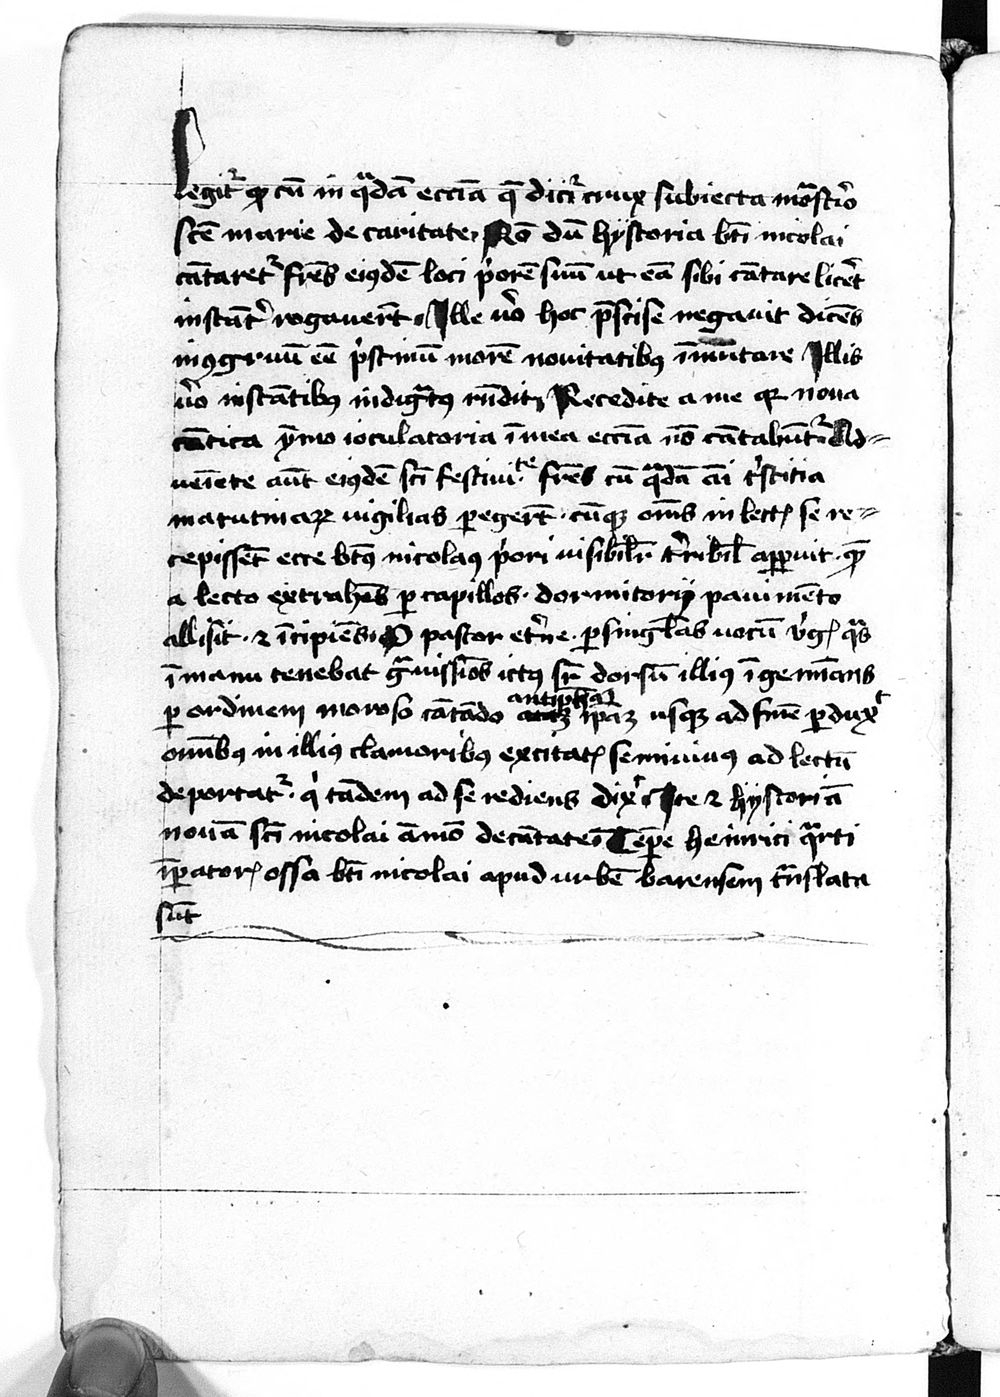 Legit᷑ ꝙ cū in qᷓdā eccīa q̄ dicit᷑ crux subiecta moᷓst̾io
scē marie de caritate, Nō dū hystoria bt̄i nicolai
cātaret᷑ fr̄es eiꝰdē loci p̾orē suū ut eā sibi cātare licēt
instāt̾ rogaver̄t. Ille v̾o hoc p̄scise negavit dicēs
inꝯgruū eē p̾stinū morē novitatibꝰ īmutare Illis
v̾o instātibꝰ indigᷓtꝰ rn̄dit, Recedite a me qꝛ nova
cātica ẏmo ioculatoria ī mea eccīa nō cātabūt᷑ Ad=
veīente aūt eiꝰdē sc̄i festivi.te fr̄es cū qᷓdā aīi t̾stitia
matutinaꝝ vigilias ꝑegerᷓt. cūqꝫ om̄s in lectꝭ se re=
cepissēt ecce bt̄ꝰ nicolaꝰ p̾ori visibilr̄ t̾ribil̄ appuit. qᷓ
a lecto extrahēs ꝑ capillos. dormitorij pavimēto
allisit. ⁊ īcipiēs O pastor et̾ne. ꝑ singl̄as vocū v̾gꝭ qᷓs
ī manu tenebat gᷓvissīos ictꝰ sr̄ dorsū illiꝰ īgemīans
ꝑ ordinem moroso cātādo antiphaꝫ ip̄aꝫ usqꝫ ad finē ꝑduxᵗ
omībꝰ in illiꝰ clamoribꝰ excitatꝭ semivivꝰ ad lectū
deportat᷑. q̾ tādem ad se rediens dix̾ Ite ⁊ hystoriā
novā sc̄i nicolai āmō decātate Tēpe heinrici qᷓrti
īꝑatorꝭ ossa bt̄i nicolai apud urbē barensem tᷓnslata
sūt